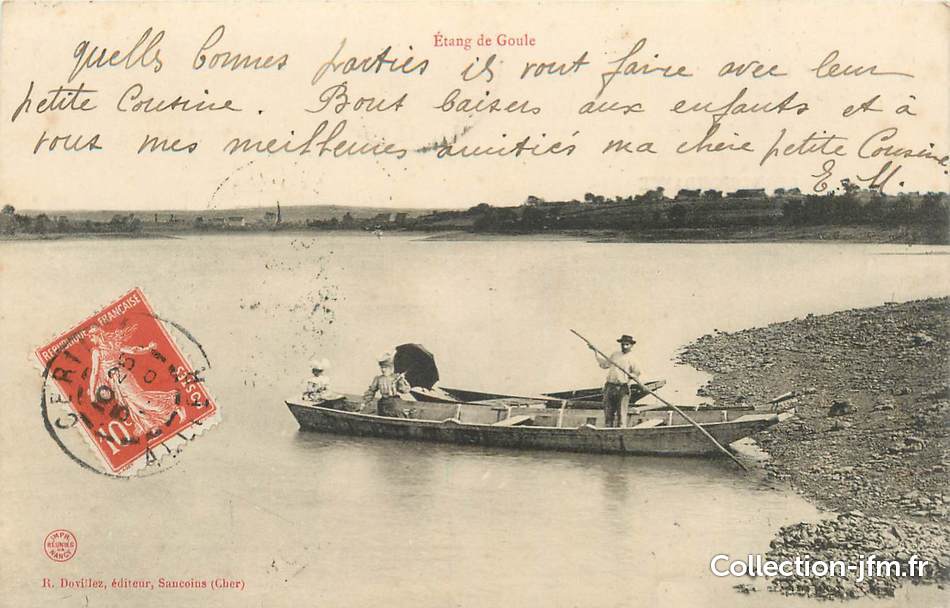 Étang de Goule
quelles bonnes parties ils vont faire avec leur
petite Cousine. Bons baisers aux enfants et à
vous mes meilleures amitiés ma chère petite Cousine
E. M.
RÉPUBLIQUE FRANÇAISE
POSTES
10c
IMPR.
RÉUNIES
NANCY
R. Dovillez, éditeur, Sancoins (Cher)
Collection-jfm.fr